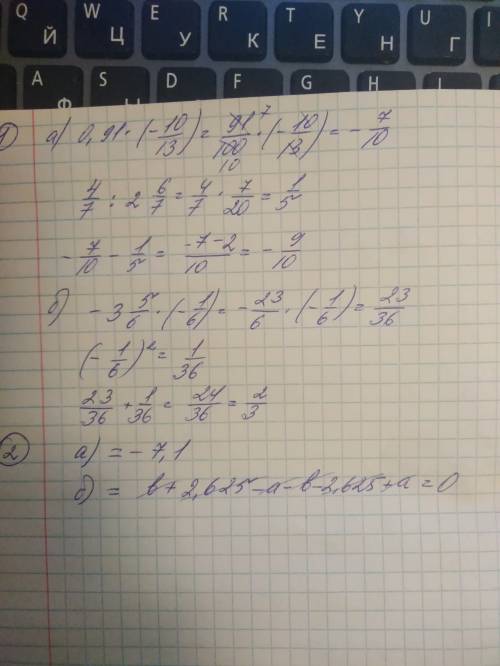 Q W E R T Y U I
Й Ц У К Е Н Г
A S D F G H J
Ф
1) а) 0,91 · (-10/13) = 91/100 · (-10/13) = - 7/10
7
10
4/7 : 2 6/7 = 4/7 · 7/20 = 1/5
- 7/10 - 1/5 = -7-2/10 = - 9/10
б) - 3 5/6 · (-1/6) = - 23/6 · (-1/6) = 23/36
(- 1/6)² = 1/36
23/36 + 1/36 = 24/36 = 2/3
2 а) = - 7,1
б) = b + 2,625 - a - b - 2,625 + a = 0